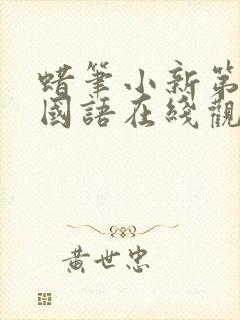 蜡筆小新第
國語在綫觀
黃世忠